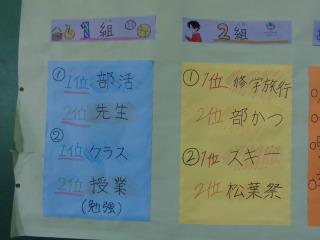 1組
① 1位 部活
2位 先生
② 1位 クラス
2位 授業
(勉強)
2組
① 1位 修学旅行
2位 部かつ
② 1位 スキー
2位 松葉祭